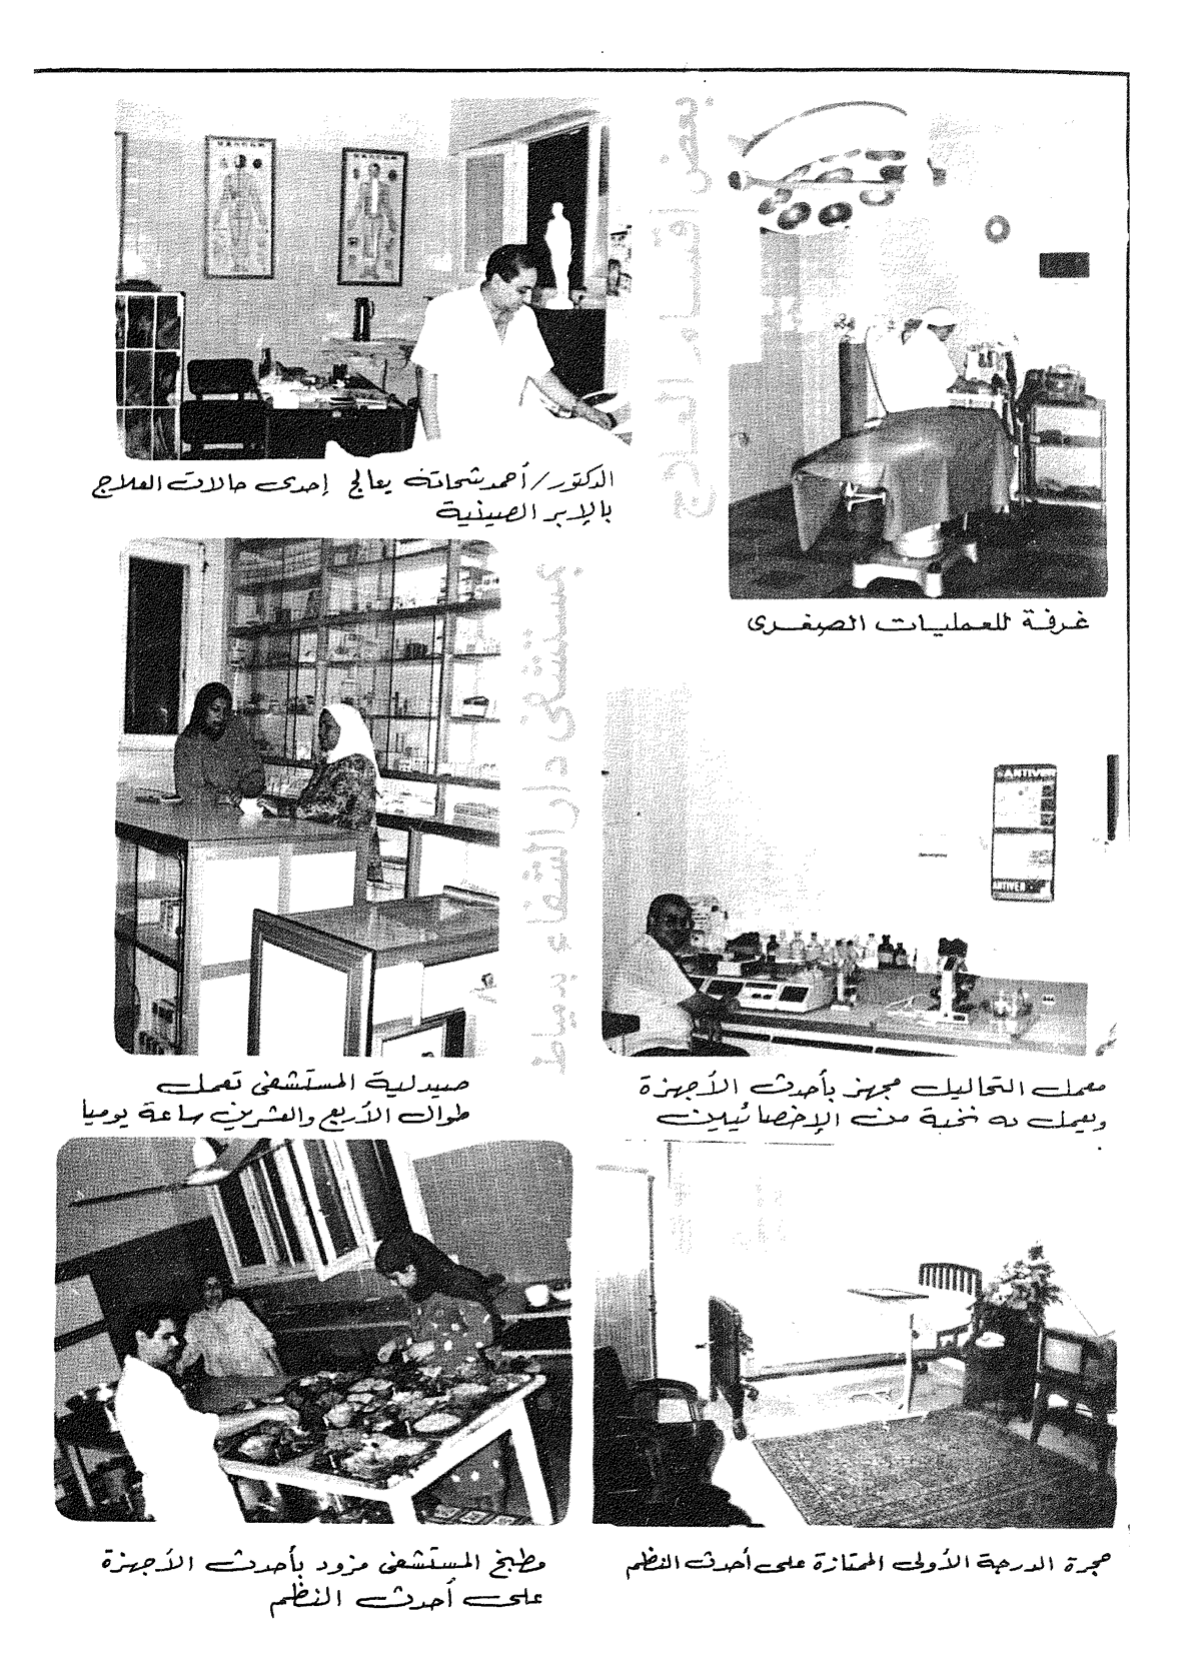 بعض أقسام العلاج
بمستشفى دار الشفاء بدمياط
غرفة للعمليات الصغرى
الدكتور/أحمد شحاته يعالج إحدى حالات العلاج
بالإبر الصينية
معمل التحاليل مجهز بأحدث الأجهزة
ويعمل به نخبة من الإخصائيين
ANTIVER
ANTIVER
صيدلية المستشفى تعمل
طوال الأربع والعشرين ساعة يوميا
حجرة الدرجة الأولى الممتازة على أحدث النظم
مطبخ المستشفى مزود بأحدث الأجهزة
على أحدث النظم